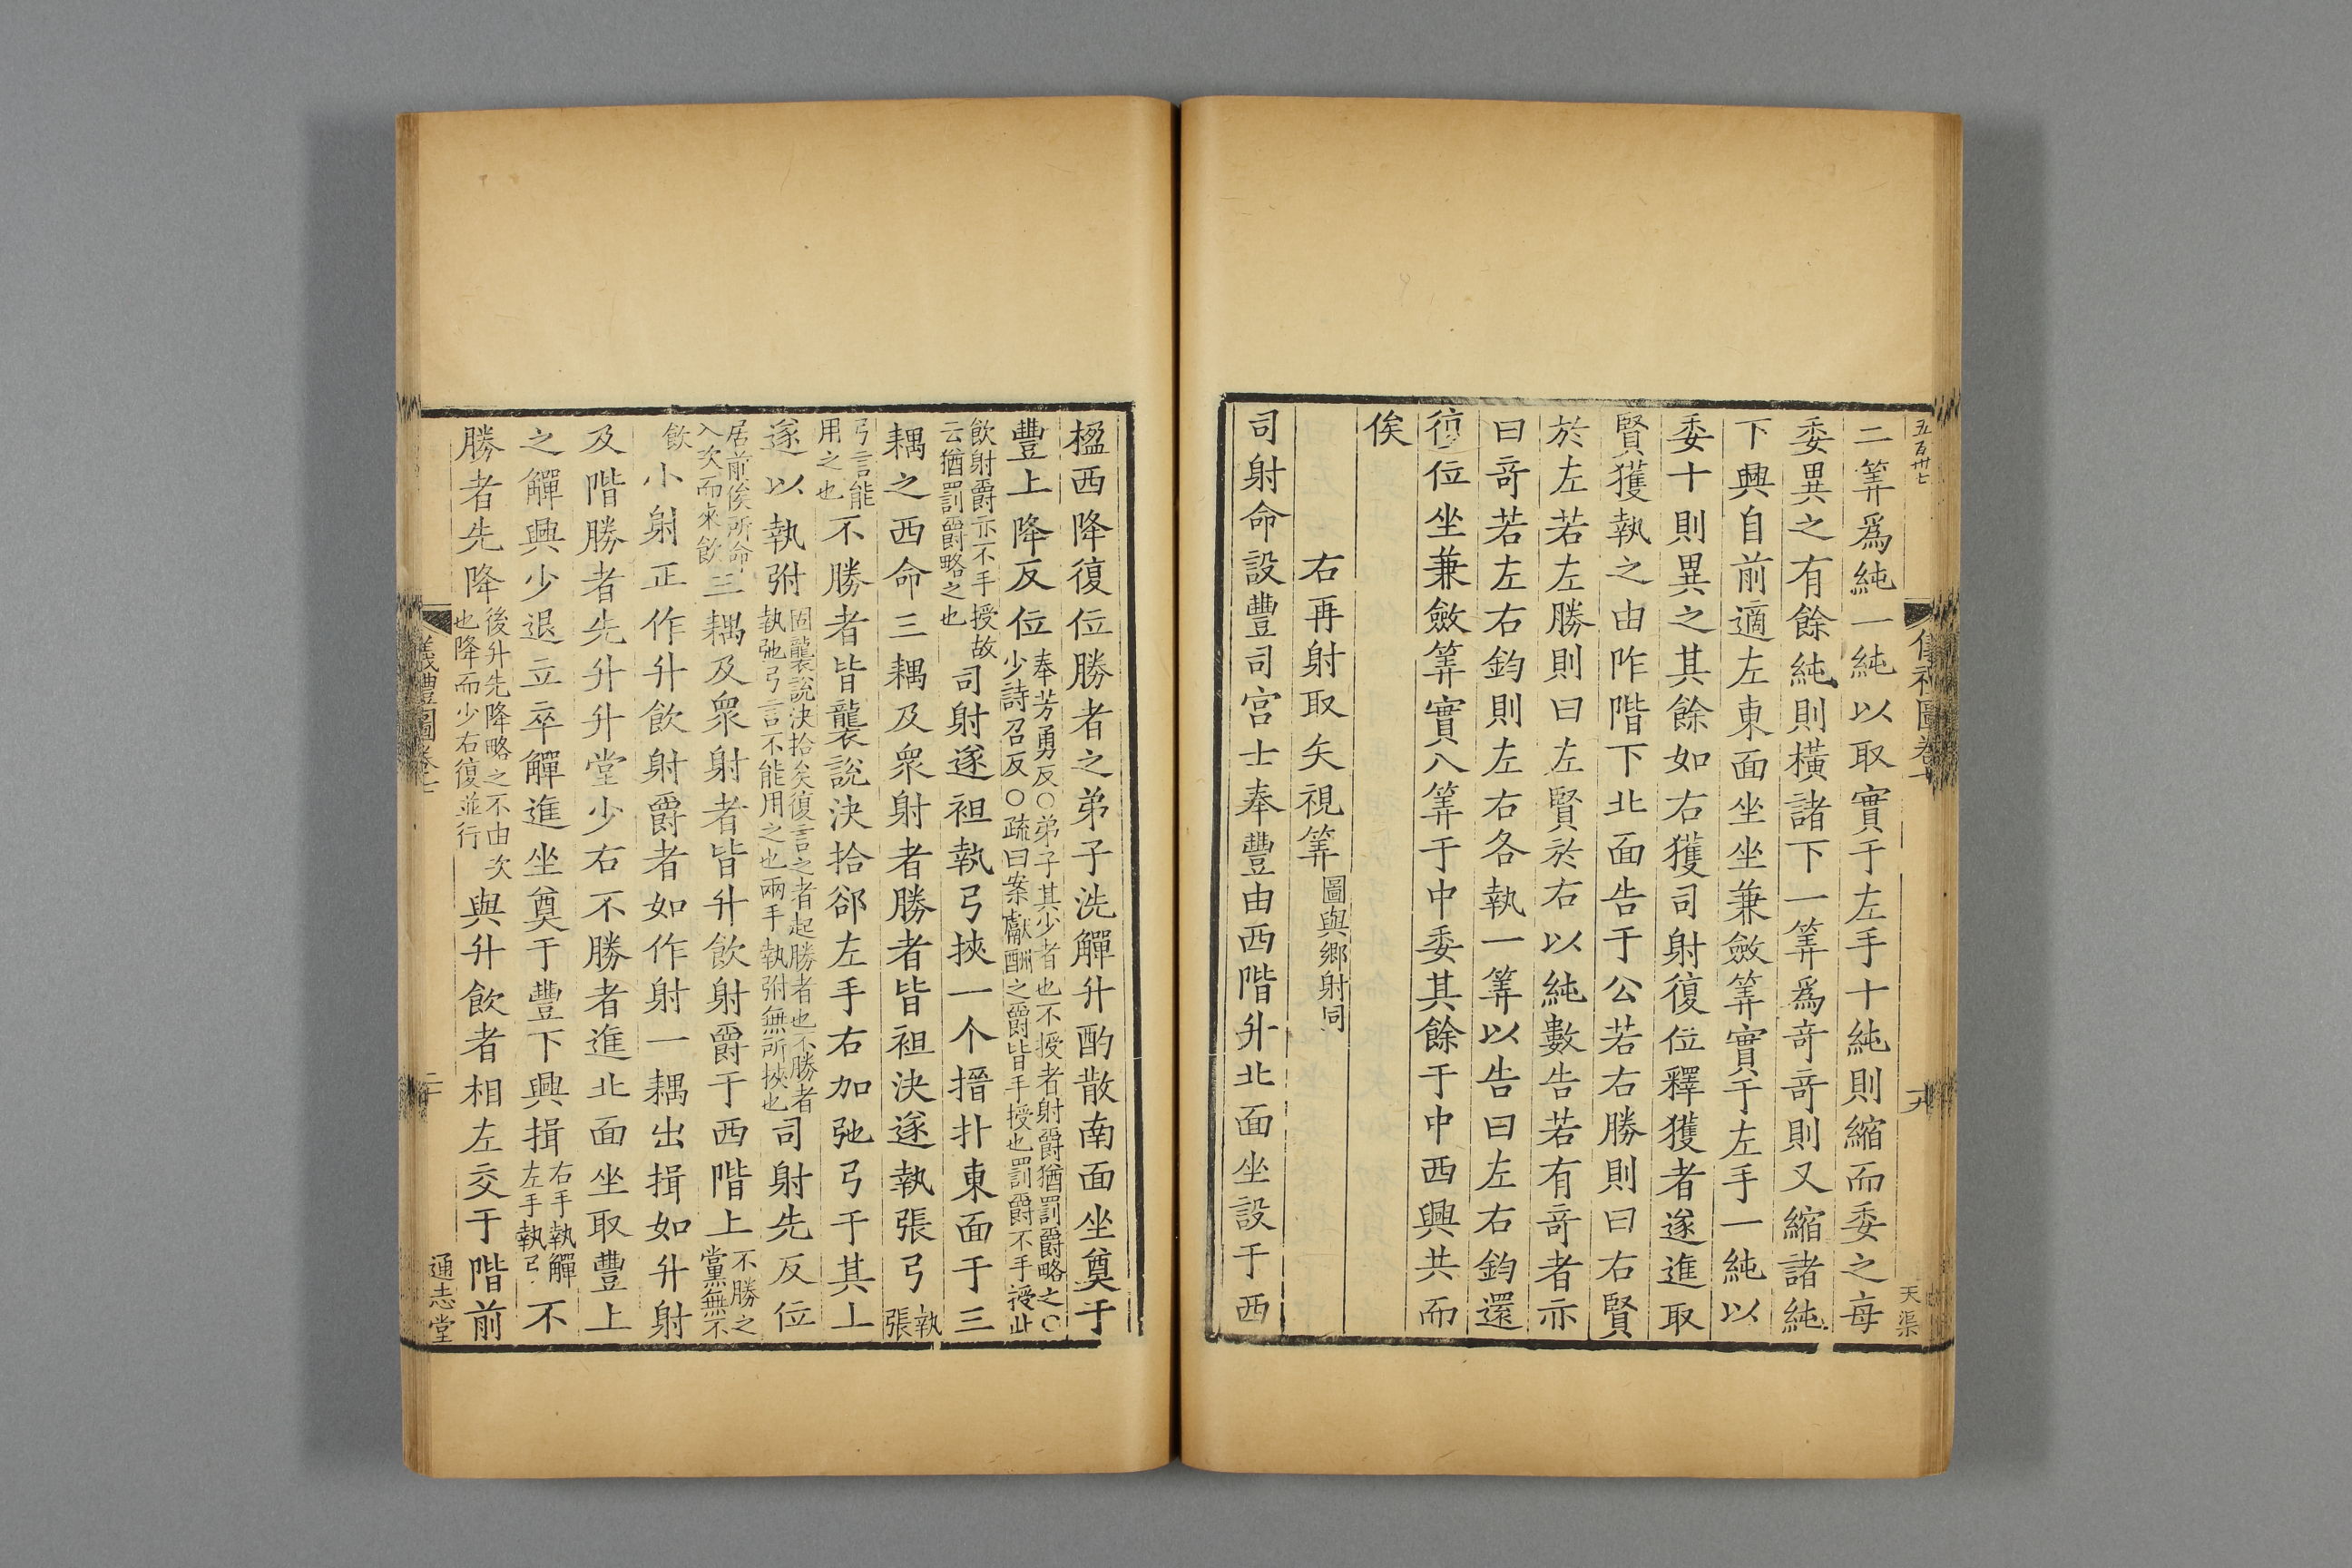 五百卅七
二筭爲純一純以取實于左手十純則縮而委之每
委異之有餘純則橫諸下一筭爲奇奇則又縮諸純
下興自前適左東面坐坐兼斂筭實于左手一純以
委十則異之其餘如右獲司射復位釋獲者遂進取
賢獲執之由阼階下北面告于公若右勝則曰右賢
於左若左勝則曰左賢於右以純數告若有奇者亦
曰奇若左右鈞則左右各執一筭以告曰左右鈞還
復位坐兼斂筭實八筭于中委其餘于中西興共而
俟
右再射取矢視筭圖與鄉射同
司射命設豐司宮士奉豐由西階升北面坐設于西
天渠
楹西降復位勝者之弟子洗觶升酌散南面坐奠于
豐上降反位奉芳勇反○弟子其少者也不授者射爵猶罰爵略之○
少詩召反○疏曰案獻酬之爵皆手授也罰爵不手授此
飲射爵亦不手授故
云猶罰爵略之也司射遂袒執弓挾一个搢扑東面于三
耦之西命三耦及衆射者勝者皆袒決遂執張弓執張
弓言能
用之也不勝者皆襲說決拾郤左手右加弛弓于其上
遂以執弣固襲說決拾矣復言之者起勝者也不勝者
執弛弓言不能用之也兩手執弣無所挾也司射先反位
居前俟所命
入次而來飲三耦及衆射者皆升飲射爵于西階上不勝之
黨無不
飲小射正作升飲射爵者如作射一耦出揖如升射
及階勝者先升升堂少右不勝者進北面坐取豐上
之觶興少退立卒觶進坐奠于豐下興揖右手執觶
左手執弓不
勝者先降後升先降略之不由次
也降而少右復並行與升飲者相左交于階前
儀禮圖卷七
二十
通志堂